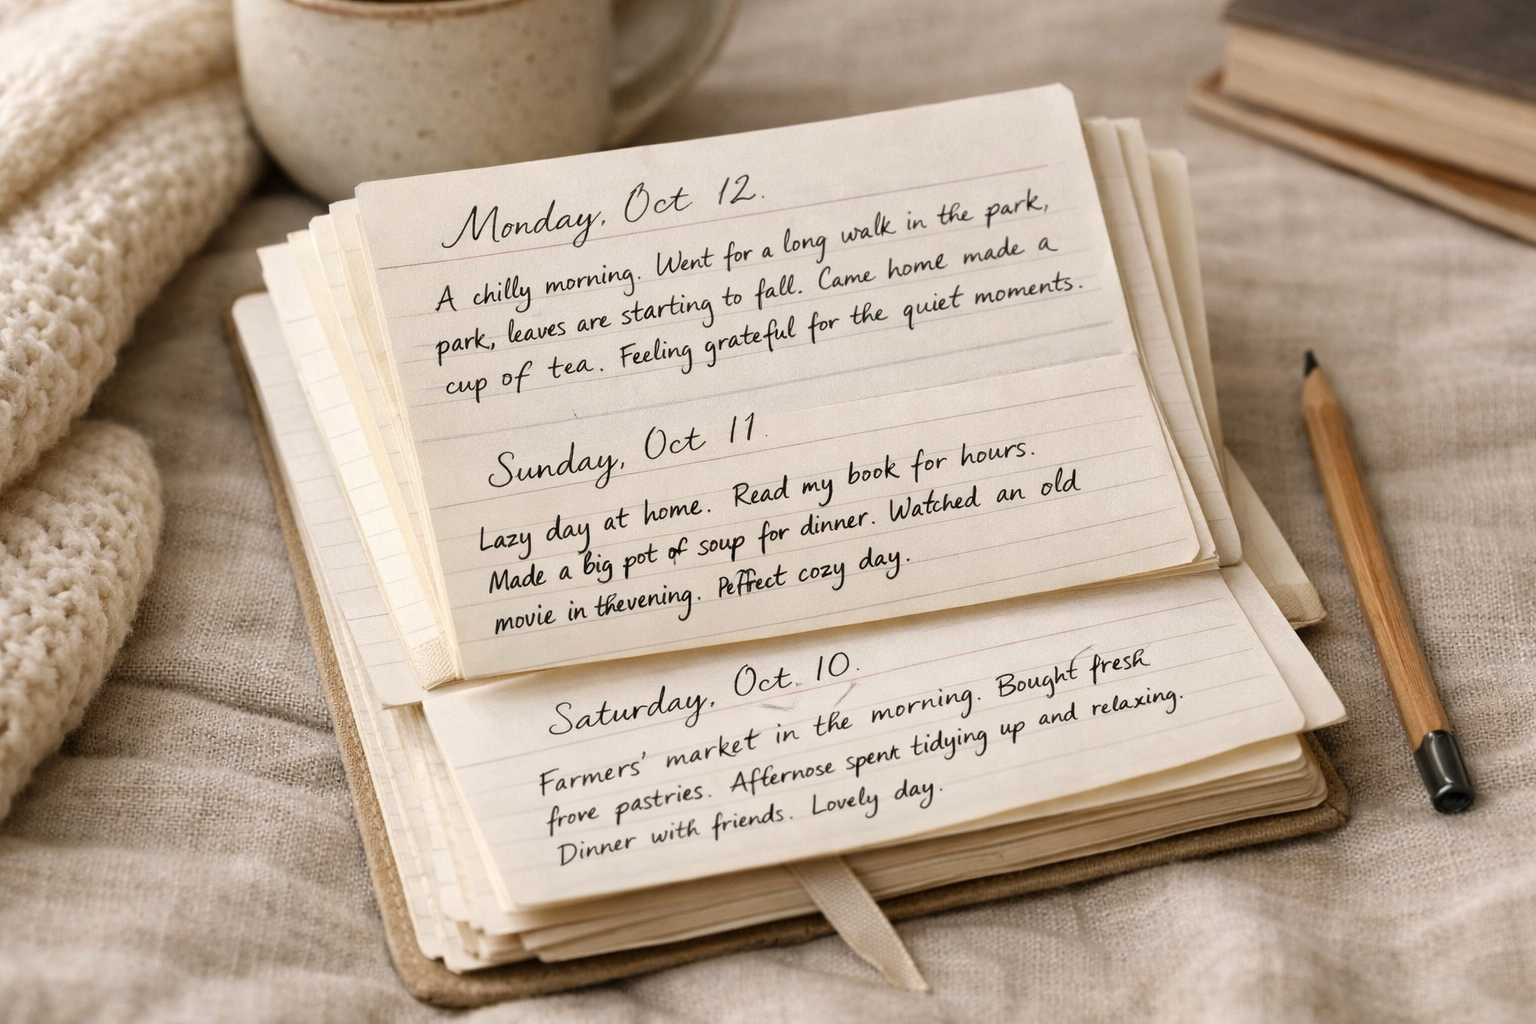 Monday, Oct 12.
A chilly morning. Went for a long walk in the park,
park, leaves are starting to fall. Came home made a
cup of tea. Feeling grateful for the quiet moments.
Sunday, Oct 11.
Lazy day at home. Read my book for hours.
Made a big pot of soup for dinner. Watched an old
movie in thevening. Peffrect cozy day.
Saturday, Oct. 10.
Farmers' market in the morning. Bought fresh
frove pastries. Affernose spent tidying up and relaxing.
Dinner with friends. Lovely day.